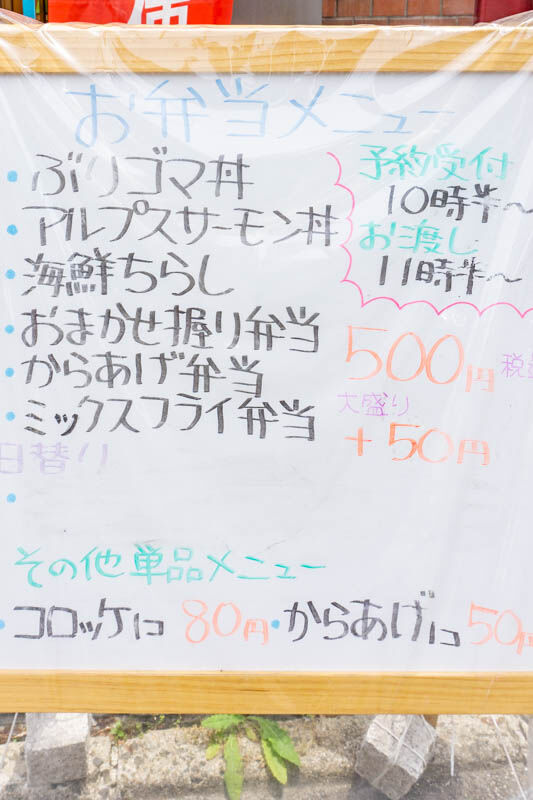 お弁当メニュー
・ぶりゴマ丼
・アルプスサーモン丼
・海鮮ちらし
・おまかせ握り弁当
・からあげ弁当
・ミックスフライ弁当
予約受付
10時半〜
お渡し
11時半〜
500円 税
大盛り
+50円
日替り
・
その他単品メニュー
・コロッケ1コ 80円・からあげ1コ 50円